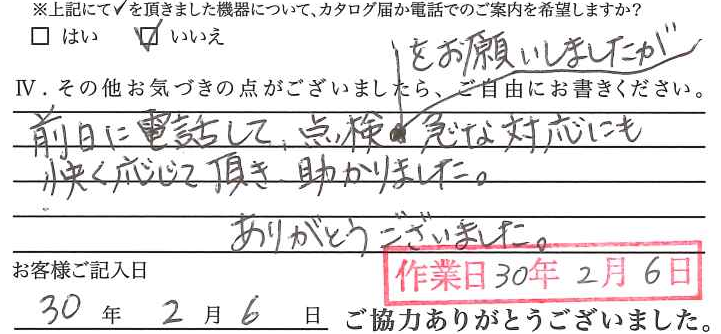 ※上記にて✓を頂きました機器について、カタログ届か電話でのご案内を希望しますか?
□ はい ☑ いいえ
をお願いしましたが
Ⅳ．その他お気づきの点がございましたら、ご自由にお書きください。
前日に電話して、点検 急な対応にも
快く応じて頂き助かりました。
ありがとうございました。
お客様ご記入日
作業日30年2月6日
30年2月6日
ご協力ありがとうございました。